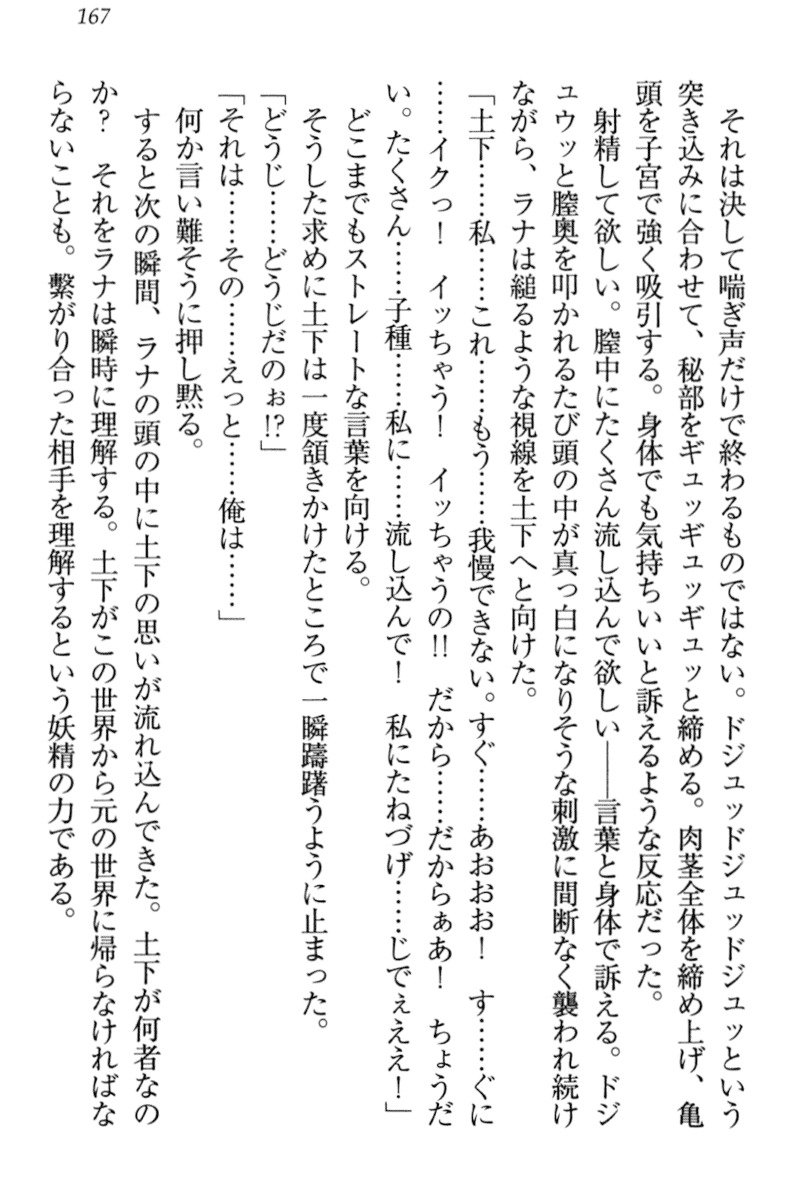 167
それは決して喘ぎ声だけで終わるものではない。ドジュッドジュッドジュッという
突き込みに合わせて、秘部をギュッギュッギュッと締める。肉茎全体を締め上げ、亀
頭を子宮で強く吸引する。身体でも気持ちいいと訴えるような反応だった。
射精して欲しい。膣中にたくさん流し込んで欲しい――言葉と身体で訴える。ドジ
ュウッと膣奥を叩かれるたび頭の中が真っ白になりそうな刺激に間断なく襲われ続け
ながら、ラナは縋るような視線を土下へと向けた。
「土下……私……これ……もう……我慢できない。すぐ……あおおお！　す……ぐに
……イクっ！　イッちゃう！　イッちゃうの!!　だから……だからぁあ！　ちょうだ
い。たくさん……子種……私に……流し込んで！　私にたねづげ……じでぇええ！」
どこまでもストレートな言葉を向ける。
そうした求めに土下は一度頷きかけたところで一瞬躊躇うように止まった。
「どうじ……どうじだのぉ!?」
「それは……その……えっと……俺は……」
何か言い難そうに押し黙る。
すると次の瞬間、ラナの頭の中に土下の思いが流れ込んできた。土下が何者なの
か？　それをラナは瞬時に理解する。土下がこの世界から元の世界に帰らなければな
らないことも。繋がり合った相手を理解するという妖精の力である。